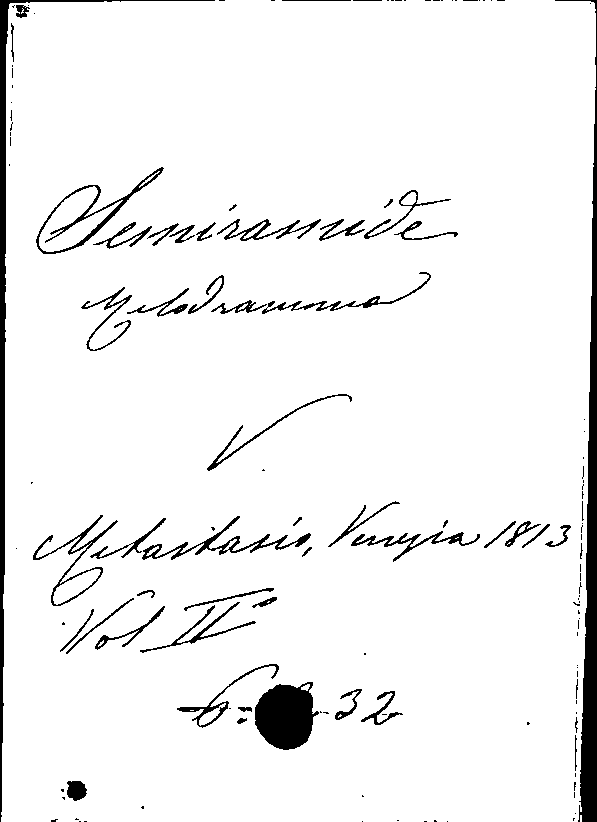 Semiramide
Melodramma
V
Metastasio, Venezia 1813
Vol II°
32